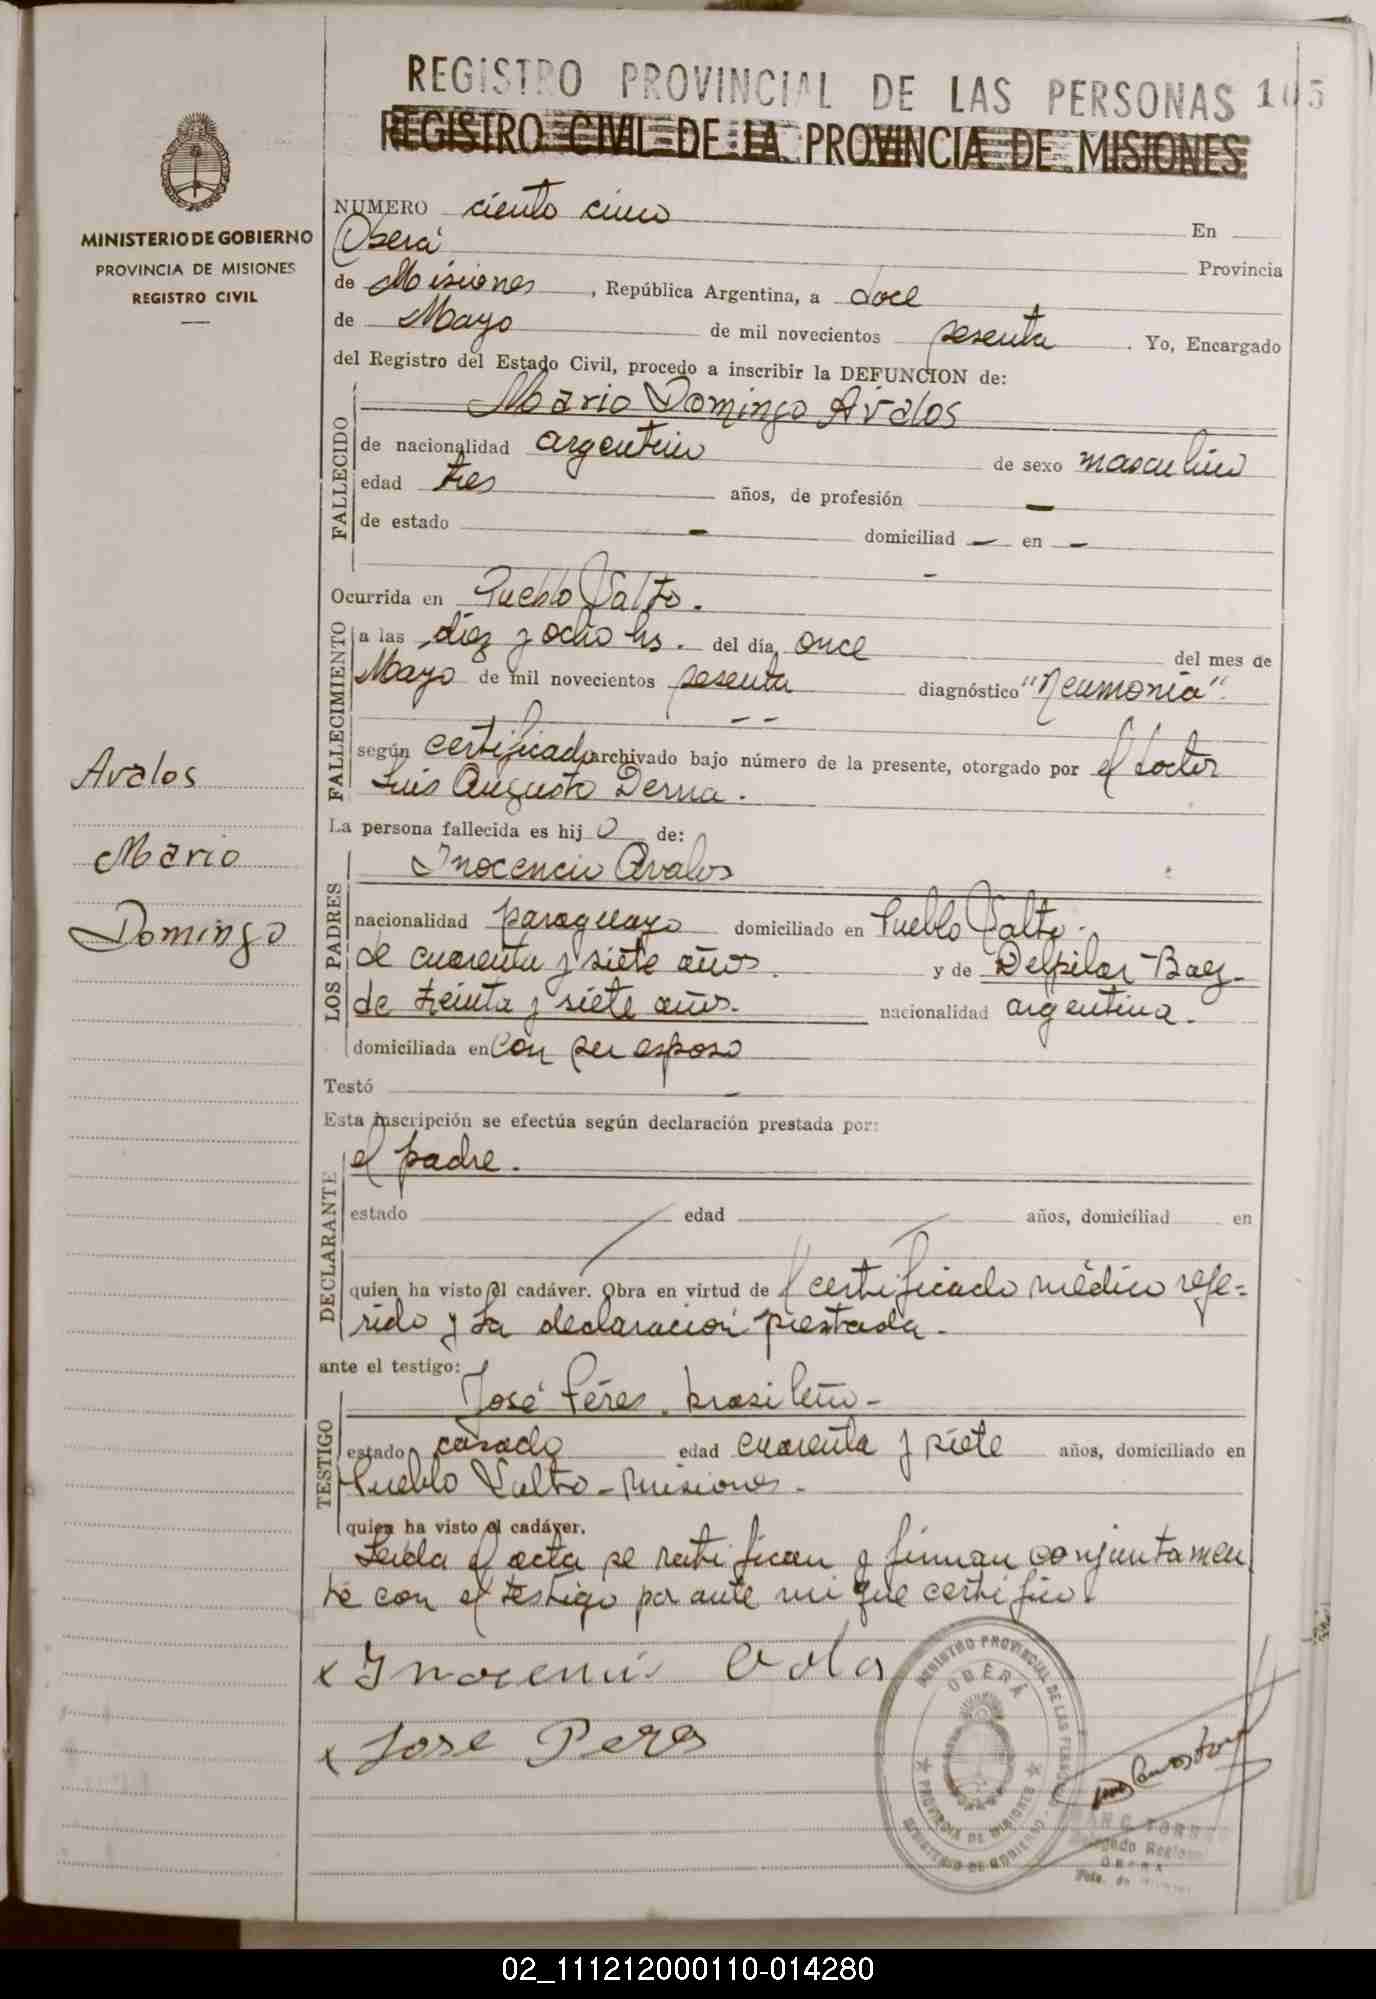 REGISTRO PROVINCIAL DE LAS PERSONAS 105
REGISTRO CIVIL DE LA PROVINCIA DE MISIONES
MINISTERIO DE GOBIERNO
PROVINCIA DE MISIONES
REGISTRO CIVIL
Avalos
Mario
Domingo
NUMERO ciento cinco En
Oberá Provincia
de Misiones, República Argentina, a doce
de Mayo de mil novecientos sesenta. Yo, Encargado
del Registro del Estado Civil, procedo a inscribir la DEFUNCION de:
FALLECIDO
Mario Domingo Avalos
de nacionalidad argentino de sexo masculino
edad tres años, de profesión —
de estado — domiciliad — en —
-
Ocurrida en Pueblo Salto.
FALLECIMIENTO
a las diez y ocho hs. del día once del mes de
Mayo de mil novecientos sesenta diagnóstico "Neumonia".
- -
según certificado archivado bajo número de la presente, otorgado por el doctor
Luis Augusto Derna.
La persona fallecida es hijo de:
LOS PADRES
Inocencio Avalos
nacionalidad paraguayo domiciliado en Pueblo Salto.
de cuarenta y siete años. y de Delpilar Baez-
de treinta y siete años. nacionalidad argentina.
domiciliada en con su esposo
Testó —
Esta inscripción se efectúa según declaración prestada por:
DECLARANTE
el padre.
estado edad años, domiciliad en
quien ha visto el cadáver. Obra en virtud de certificado médico refe=
rido y la declaración prestada.
ante el testigo:
TESTIGO
José Péres. brasileño-
estado casado edad cuarenta y siete años, domiciliado en
Pueblo Salto - Misiones.
quien ha visto el cadáver.
Leida el acta se ratifican y firman conjuntamen
te con el testigo por ante mi que certifico.
x Inocencio
x Jose Peres
REGISTRO PROVINCIAL DE LAS PERSONAS
OBERÁ
PROVINCIA DE MISIONES
MINISTERIO DE GOBIERNO
02_111212000110-014280